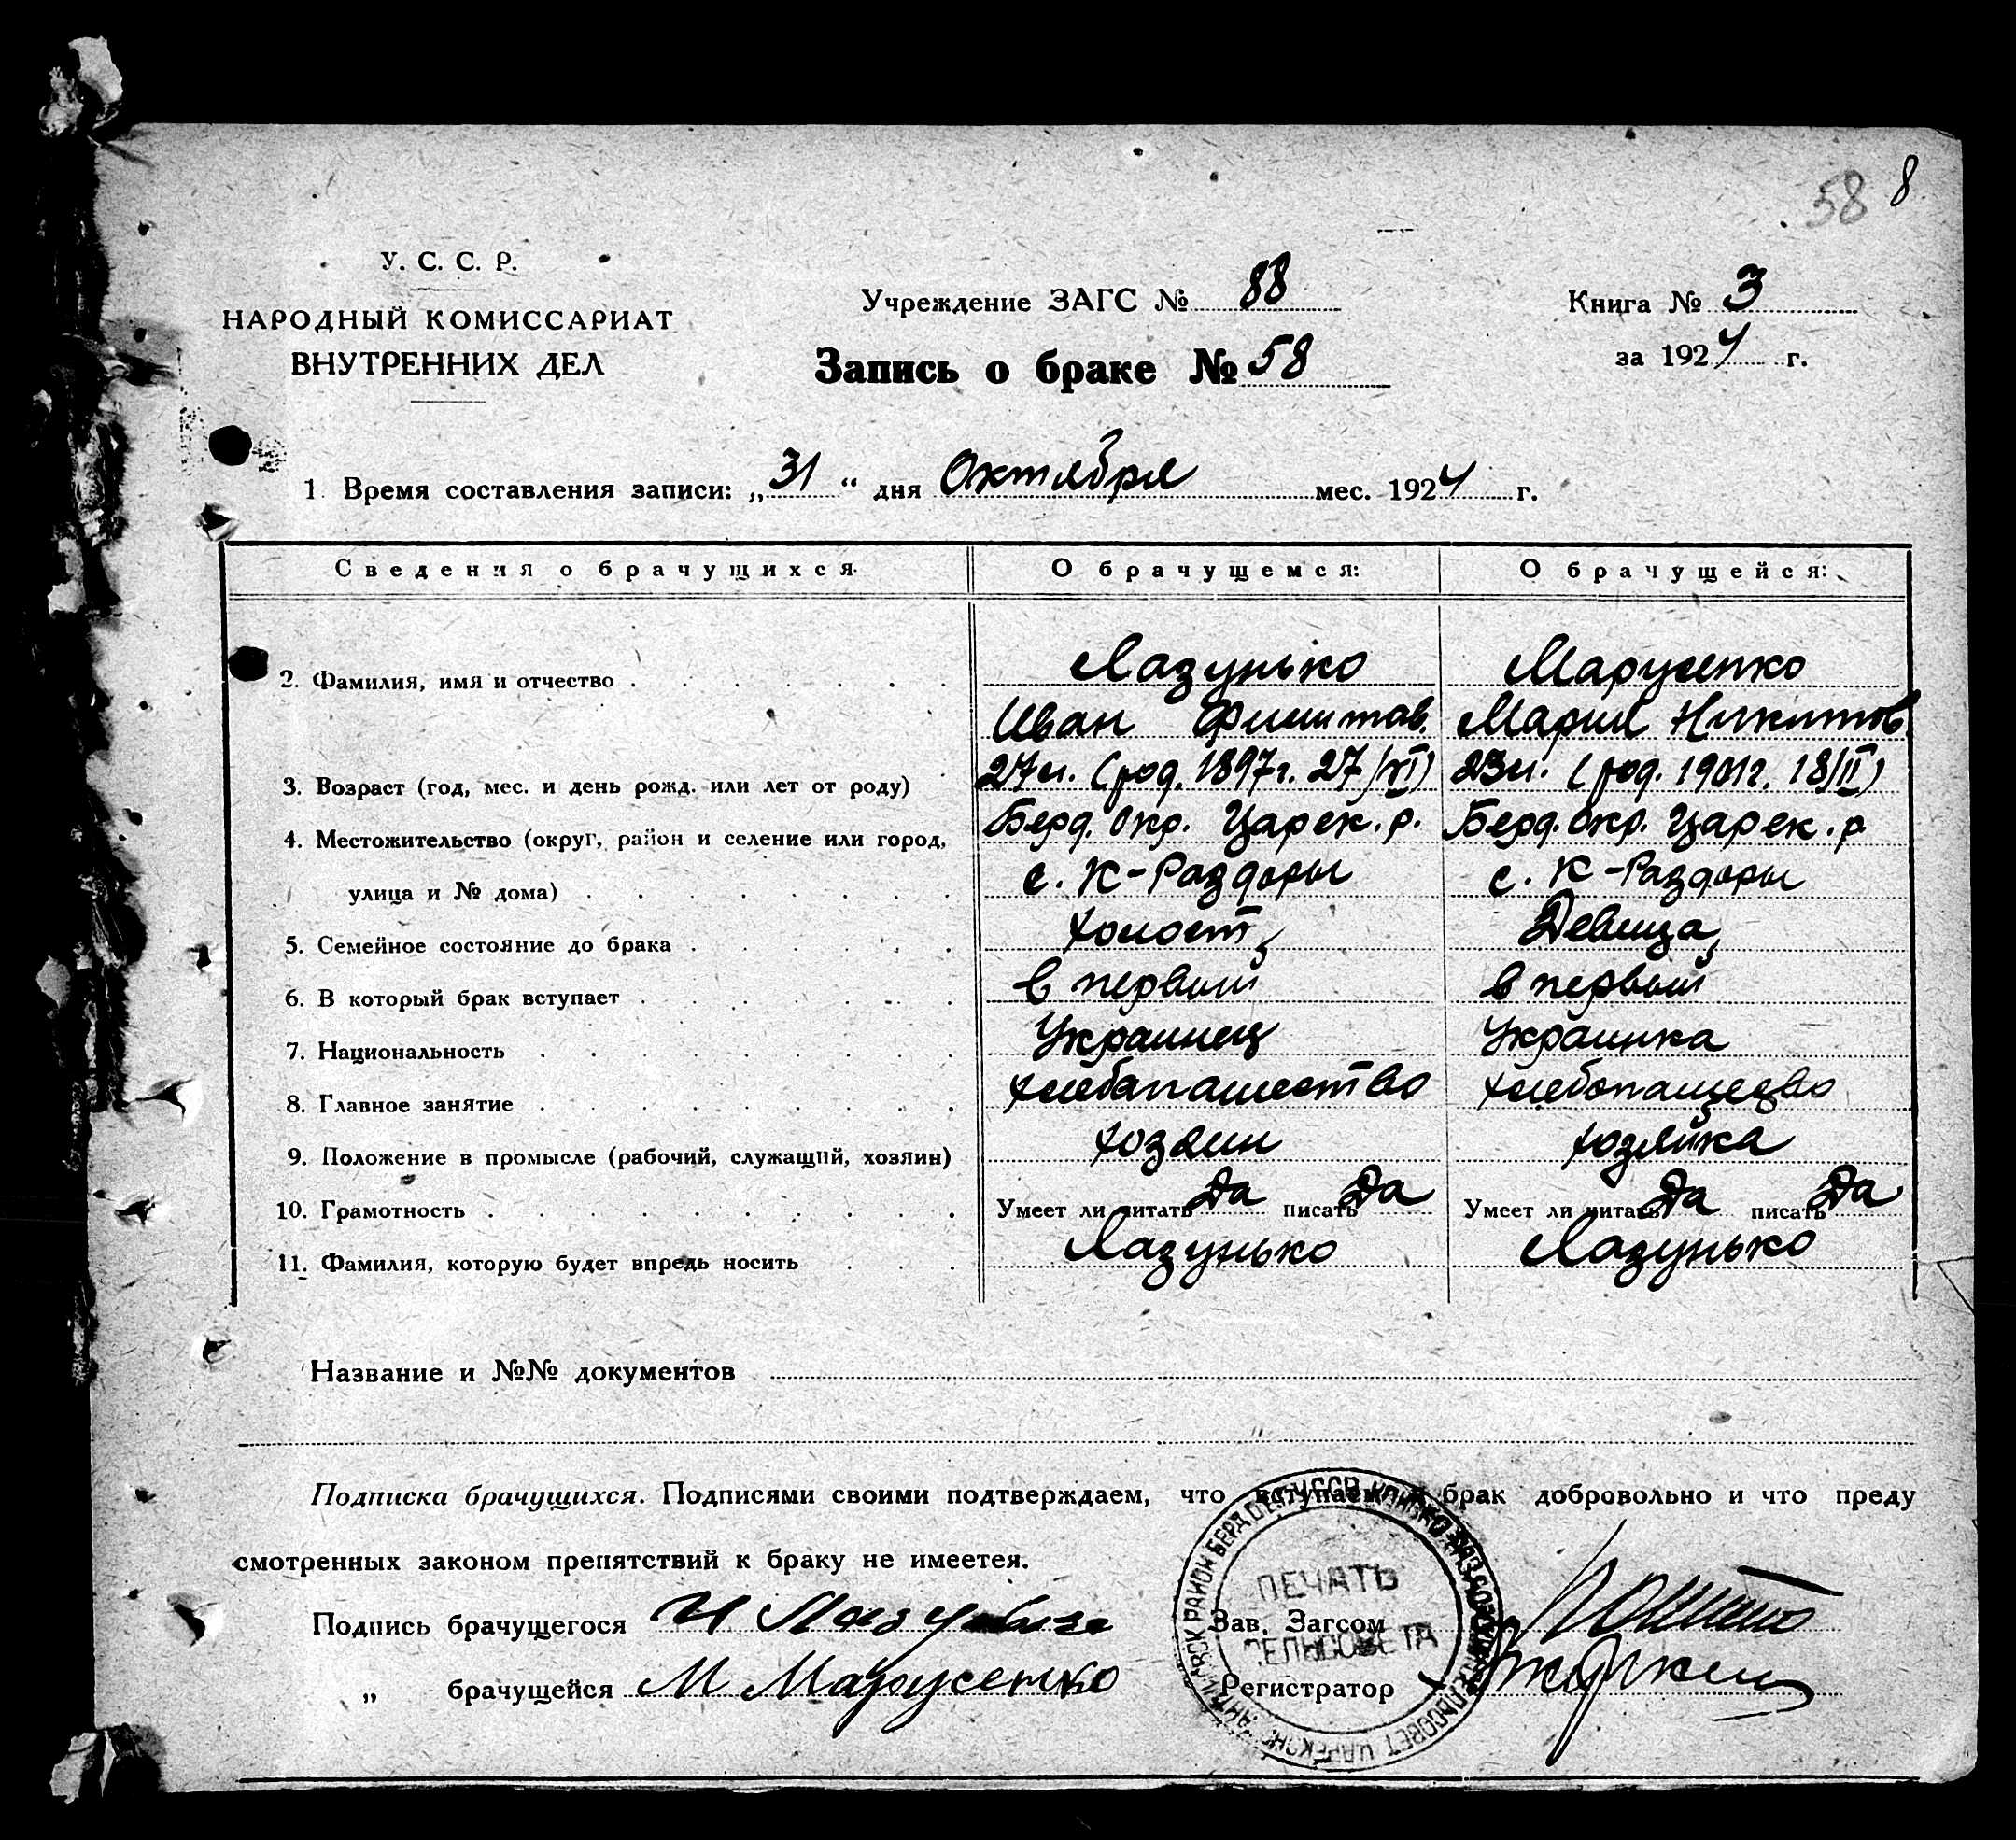 58 8
У. С. С. Р.
НАРОДНЫЙ КОМИССАРИАТ
ВНУТРЕННИХ ДЕЛ
Учреждение ЗАГС № 88
Запись о браке № 58
Книга № 3
за 1924 г.
1. Время составления записи: „31“ дня Октября мес. 1924 г.
Сведения о брачущихся. О брачущемся: О брачущейся:
2. Фамилия, имя и отчество Лазунько Марусенко
Иван Мария Никитов.
3. Возраст (год, мес. и день рожд. или лет от роду) 27 л. (род. 1897 г. 27/XI) 23 л. (род. 1901 г. 18/II)
4. Местожительство (округ, район и селение или город, Берд. окр. Царек. р. Берд. окр. Царек. р
улица и № дома) с. К-Раздоры с. К-Раздоры
5. Семейное состояние до брака холост Девица
6. В который брак вступает в первый в первый
7. Национальность Украинец Украинка
8. Главное занятие хлебапашество хлебопащество
9. Положение в промысле (рабочий, служащий, хозяин) хозяин хозяйка
10. Грамотность Умеет ли читать Да писать Да Умеет ли читать Да писать Да
11. Фамилия, которую будет впредь носить Лазунько Лазунько
Название и №№ документов
Подписка брачущихся. Подписями своими подтверждаем, что вступаем в брак добровольно и что преду
смотренных законом препятствий к браку не имеется.
Подпись брачущегося И Лазунько
„ брачущейся М Марусенко
Зав. Загсом
Регистратор
ПЕЧАТЬ
СЕЛЬСОВЕТА